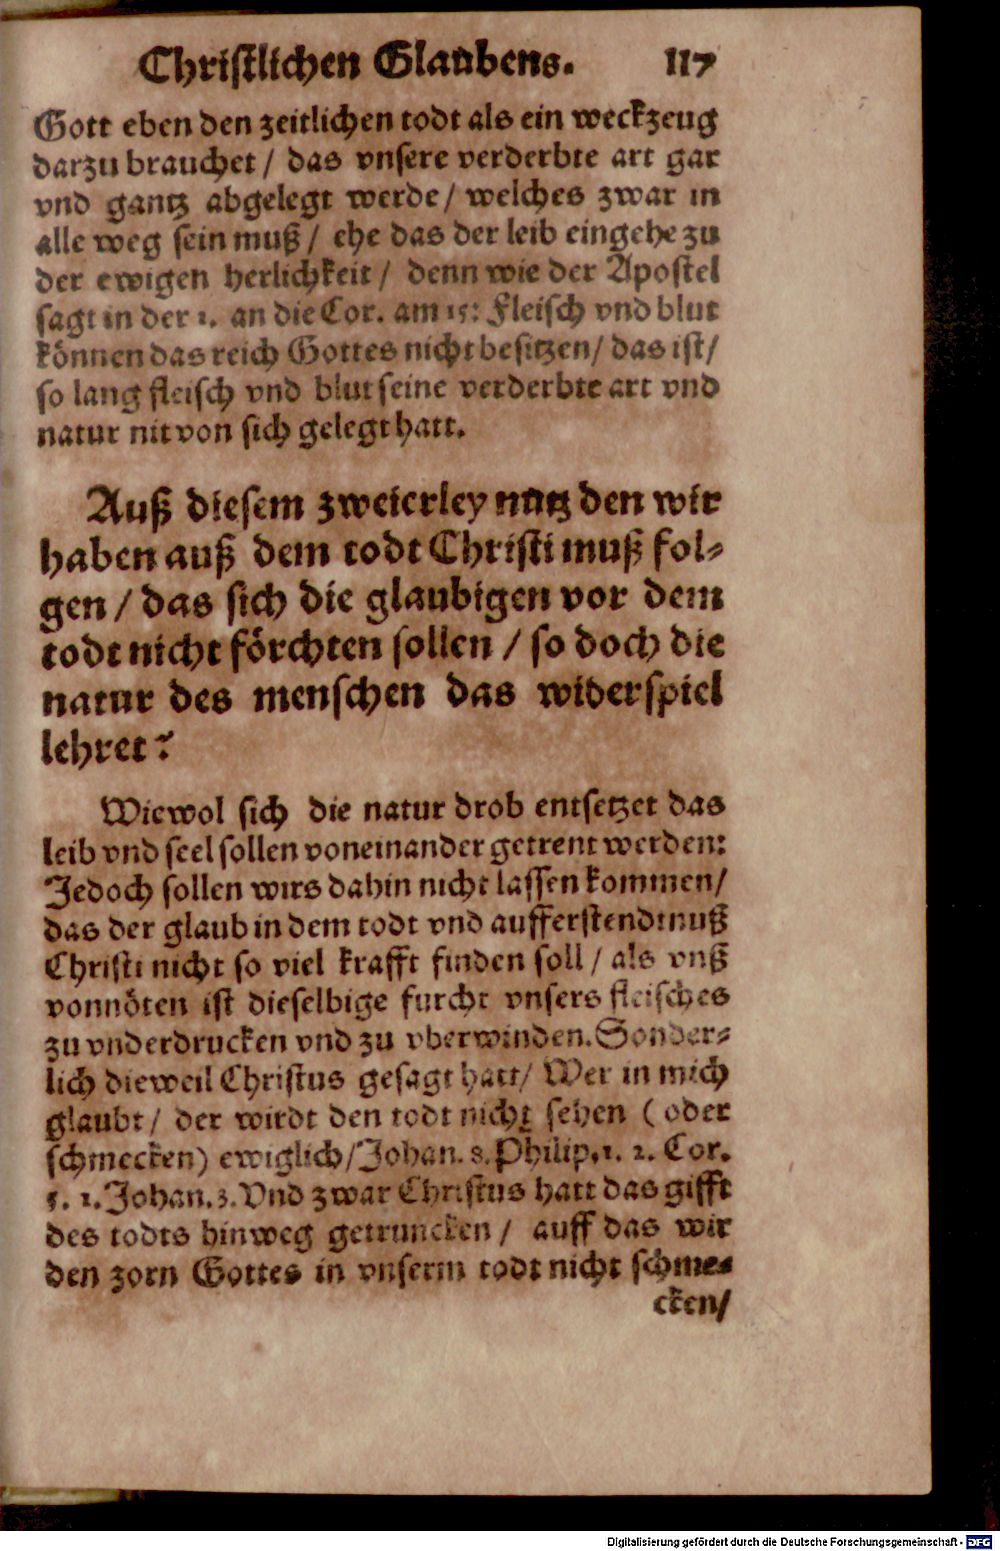 Christlichen Glaubens. 117
Gott eben den zeitlichen todt als ein weckzeug
darzu brauchet / das vnsere verderbte art gar
vnd gantz abgelegt werde / welches zwar in
alle weg sein muß / ehe das der leib eingehe zu
der ewigen herlichkeit / denn wie der Apostel
sagt in der 1. an die Cor. am 15: Fleisch vnd blut
können das reich Gottes nicht besitzen / das ist /
so lang fleisch vnd blut seine verderbte art vnd
natur nit von sich gelegt hatt.
Auß diesem zweierley nutz den wir
haben auß dem todt Christi muß fol⸗
gen / das sich die glaubigen vor dem
todt nicht förchten sollen / so doch die
natur des menschen das widerspiel
lehret?
Wiewol sich die natur drob entsetzet das
leib vnd seel sollen voneinander getrent werden:
Jedoch sollen wirs dahin nicht lassen kommen /
das der glaub in dem todt vnd aufferstendtnuß
Christi nicht so viel krafft finden soll / als vnß
vonnöten ist dieselbige furcht vnsers fleisches
zu vnderdrucken vnd zu vberwinden. Sonder⸗
lich dieweil Christus gesagt hatt / Wer in mich
glaubt / der wirdt den todt nicht sehen ( oder
schmecken) ewiglich / Johan. 8. Philip. 1. 2. Cor.
5. 1. Johan. 3. Vnd zwar Christus hatt das gifft
des todts hinweg getruncken / auff das wir
den zorn Gottes in vnserm todt nicht schme⸗
cken /
Digitalisierung gefördert durch die Deutsche Forschungsgemeinschaft - DFG